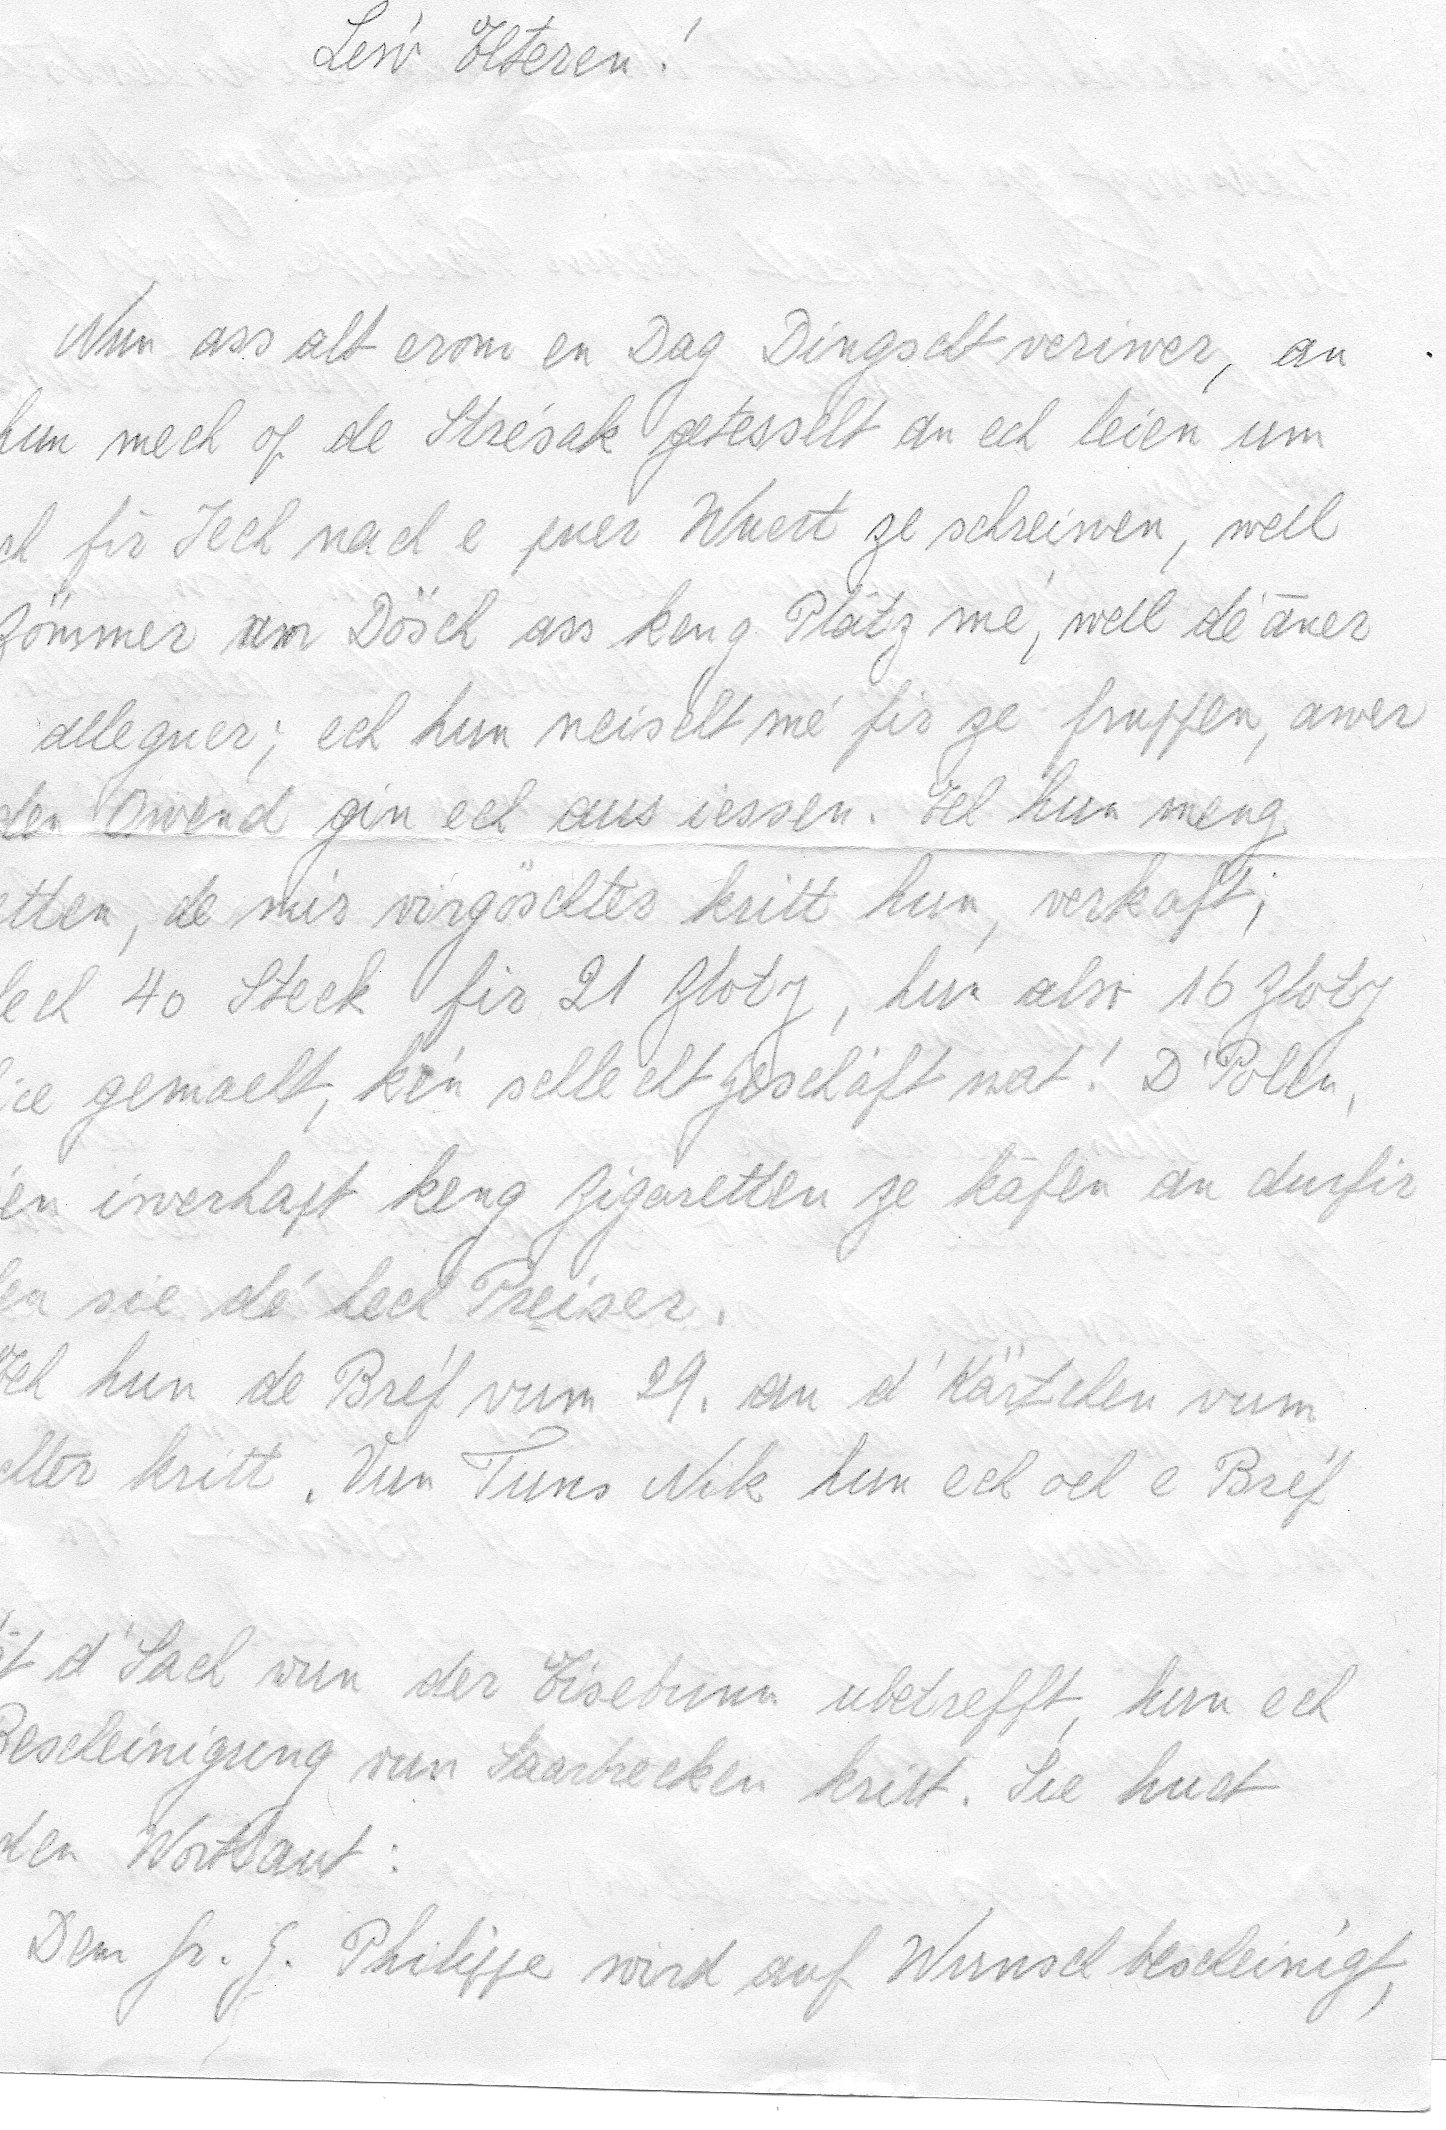 Lésv Elteren!
Nun ass alt erom en Dag Dingscht veriwer, an
hun mech op de Strésak getesselt an ech leien um
fir Iech nach e puer Wuert ze schreiwen, well
Zömmer um Dösch ass keng Plätz mé, well dé aner
alleguer; ech hun neischt mé fir ze fruppen, awer
den Owend gin ech aus iessen. Ech hun meng
etten, de mir virgöschter kritt hun, verkaft;
lech 40 Steck fir 21 Zloty, hun also 16 Zloty
gemacht, kén schlecht Geschäft wat! D'Polen,
iwerhapt keng Zigaretten ze kafen an durfir
len sie dé héch Preiser.
Ech hun de Bréf vum 29. an d'Kärtchen vum
chter kritt. Vun Tuns Nik hun ech och e Bréf
d'Sach vun der Eisebunn ubetrefft, hun ech
Bescheinigung vun Saarbrecken kritt. Sie huet
den Wortlaut:
Dem Hr. J. Philippe wird auf Wunsch bescheinigt,